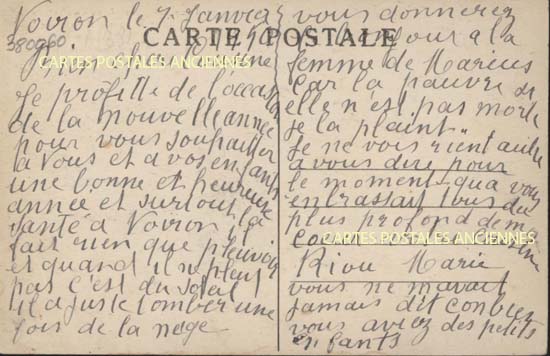 Voiron le 7 Janvier
380960
CARTE POSTALE
CARTES POSTALES ANCIENNES
Je profitte de l'occasion
de la nouvelle année
pour vous souhaiter
a vous et a vos enfants
une bonne et heureuse
année et surtout la
santé a Voiron il
fait rien que pleuvoir
et quand il ne pleut
pas c'est du soleil
il a juste tomber une
fois de la nege
vous donnerez
a la
femme de Marius
Car la pauvre si
elle n'est pas morte
je la plaint.
Je ne vois rient autre
a vous dire pour
le moment qua vous
enbrassait tous du
plus profond de mon
coeur
CARTES POSTALES ANCIENNES
Riou Marie
vous ne mavait
jamais dit conbien
vous aviez des petits
enfants